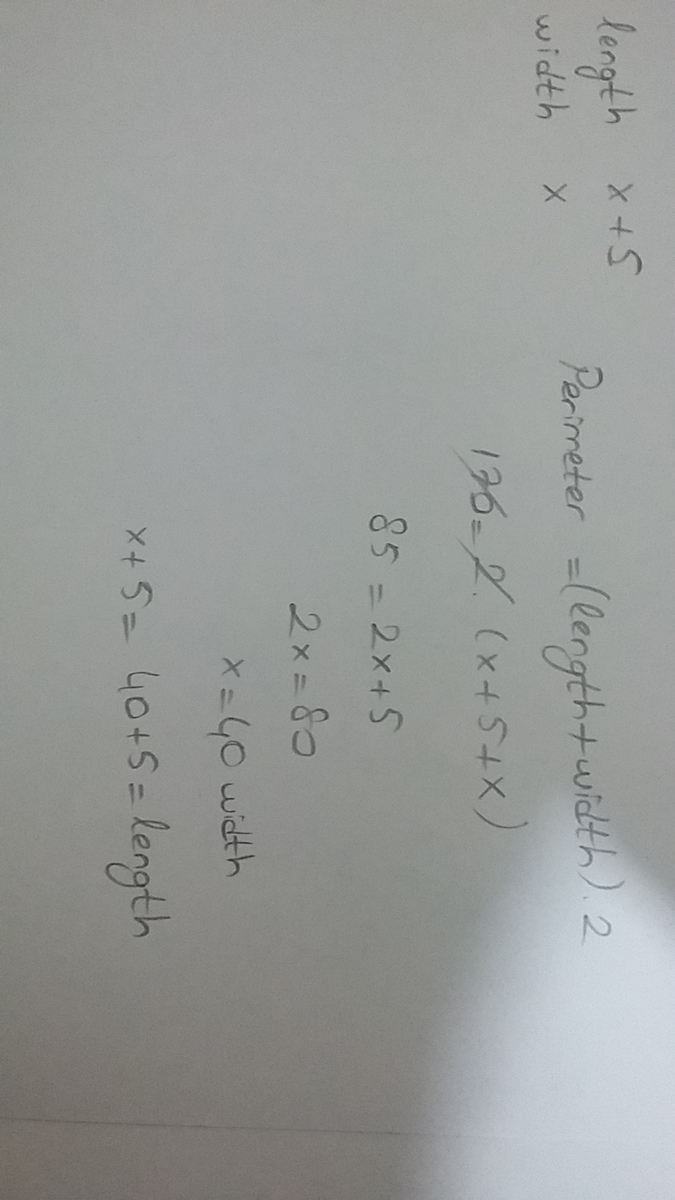 length x+5
width x
Perimeter = (length+width).2
170 = 2.(x+5+x)
85 = 2x+5
2x = 80
x = 40 width
x+5 = 40+5 = length